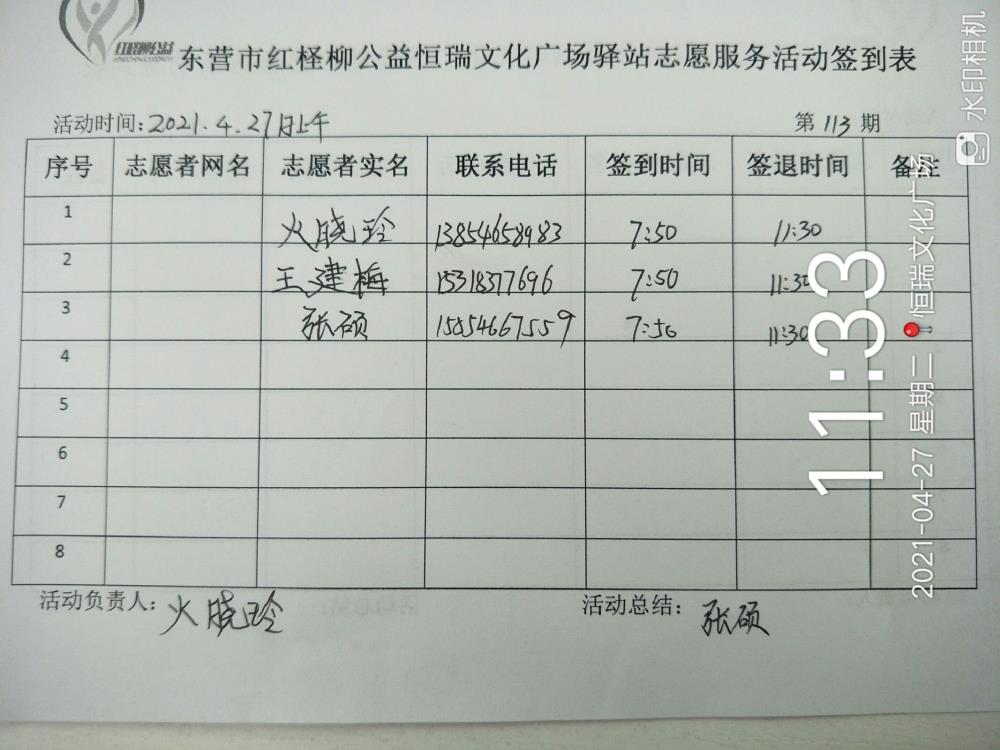 红柽柳公益
东营市红柽柳公益恒瑞文化广场驿站志愿服务活动签到表
活动时间:2021.4.27日上午 第113期
序号 志愿者网名 志愿者实名 联系电话 签到时间 签退时间 备注
1 火晓玲 13854658983 7:50 11:30
2 王建梅 15318377696 7:50 11:30
3 张硕 15854667559 7:50 11:30
4
5
6
7
8
活动负责人: 火晓玲 活动总结: 张硕
11:33
2021-04-27 星期二 恒瑞文化广场
水印相机